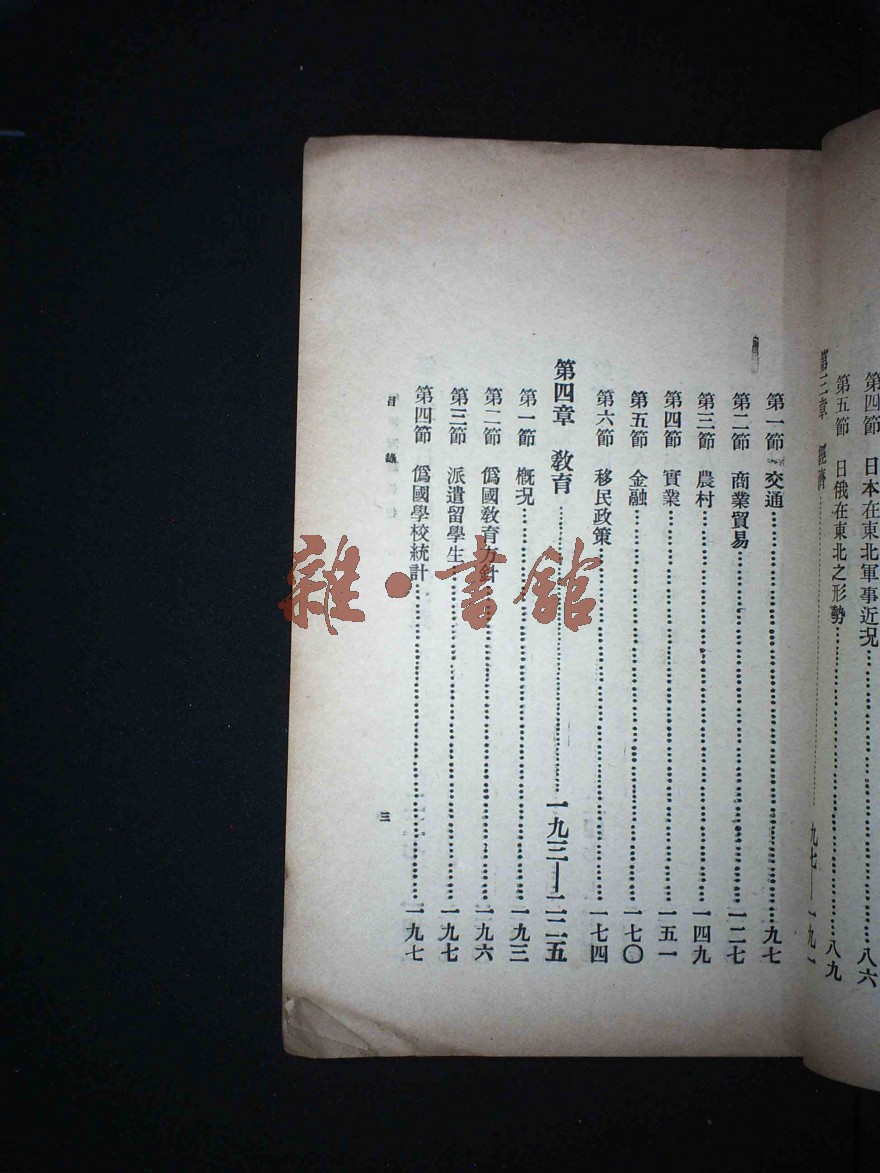 第四節 日本在東北軍事近況……八六
第五節 日俄在東北之形勢……八九
第三章 經濟……九七——一九一
第一節 交通……九七
第二節 商業貿易……一二七
第三節 農村……一四九
第四節 實業……一五一
第五節 金融……一七〇
第六節 移民政策……一七四
第四章 教育……一九三——二二五
第一節 概況……一九三
第二節 僞國教育方針……一九六
第三節 派遣留學生……一九七
第四節 僞國學校統計……一九七
目錄
三
雜·書館